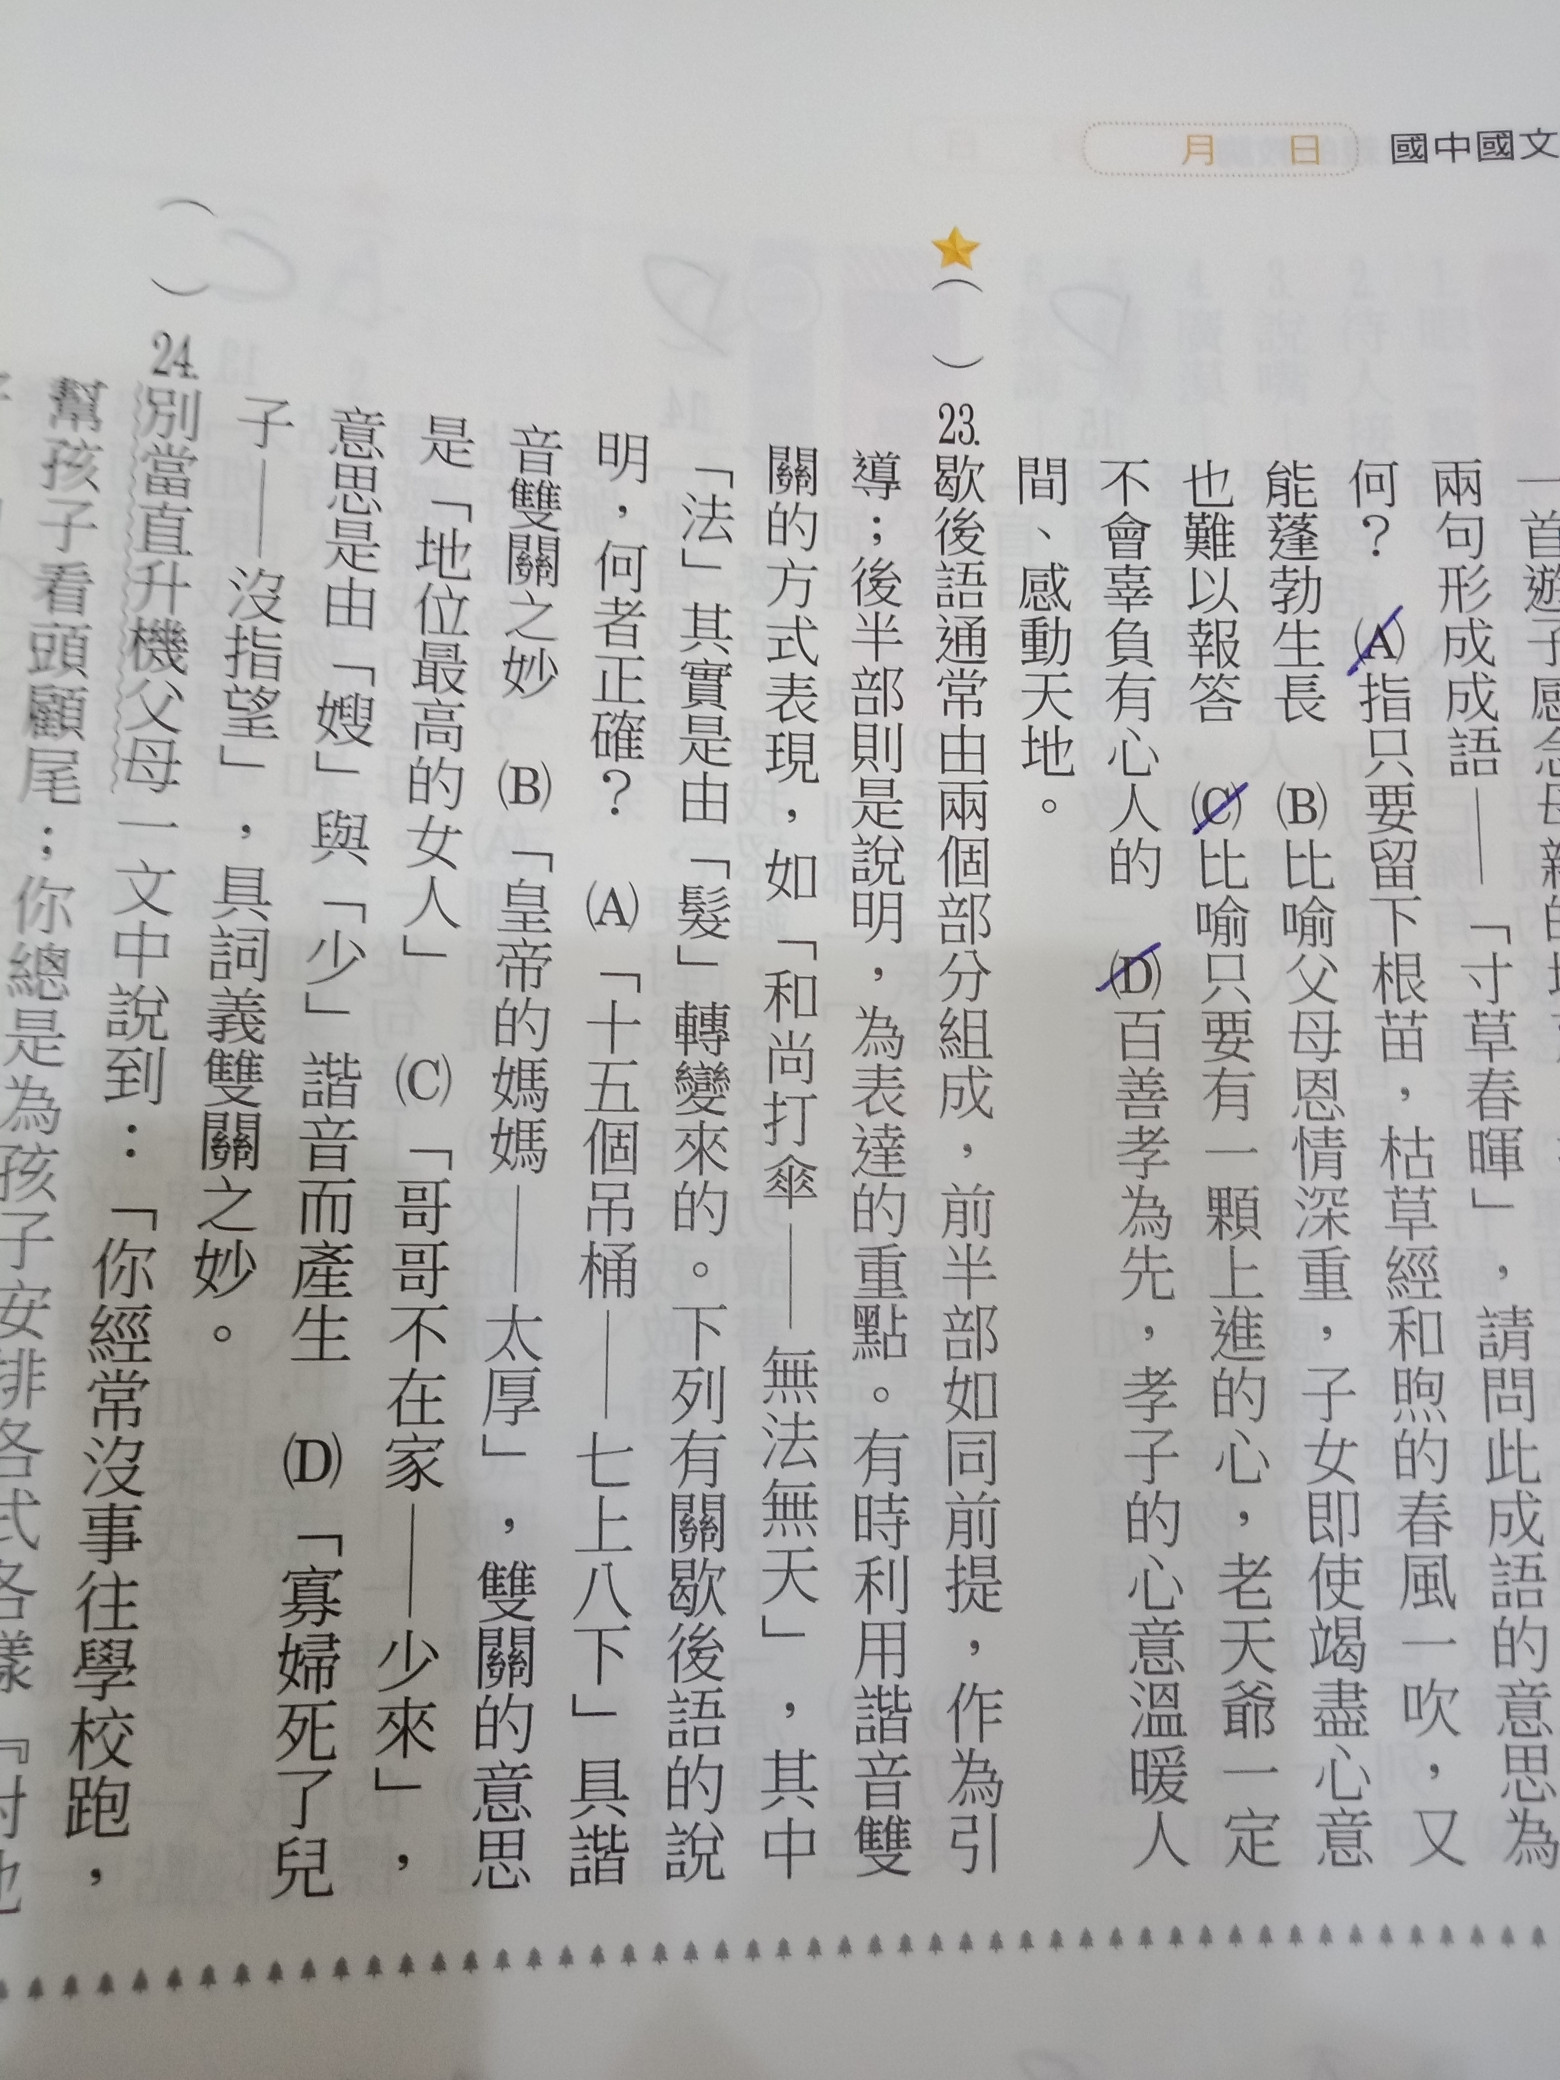 國中國文
月 日
一首遊子感念母親的
兩句形成成語——「寸草春暉」,請問此成語的意思為
何? (A)指只要留下根苗,枯草經和煦的春風一吹,又
能蓬勃生長 (B)比喻父母恩情深重,子女即使竭盡心意
也難以報答 (C)比喻只要有一顆上進的心,老天爺一定
不會辜負有心人的 (D)百善孝為先,孝子的心意溫暖人
間、感動天地。
( )23.歇後語通常由兩個部分組成,前半部如同前提,作為引
導;後半部則是說明,為表達的重點。有時利用諧音雙
關的方式表現,如「和尚打傘——無法無天」,其中
「法」其實是由「髮」轉變來的。下列有關歇後語的說
明,何者正確? (A)「十五個吊桶——七上八下」具諧
音雙關之妙 (B)「皇帝的媽媽——太厚」,雙關的意思
是「地位最高的女人」 (C)「哥哥不在家——少來」,
意思是由「嫂」與「少」諧音而產生 (D)「寡婦死了兒
子——沒指望」,具詞義雙關之妙。
( )24.別當直升機父母一文中說到:「你經常沒事往學校跑,
幫孩子看頭顧尾;你總是為孩子安排各式各樣『